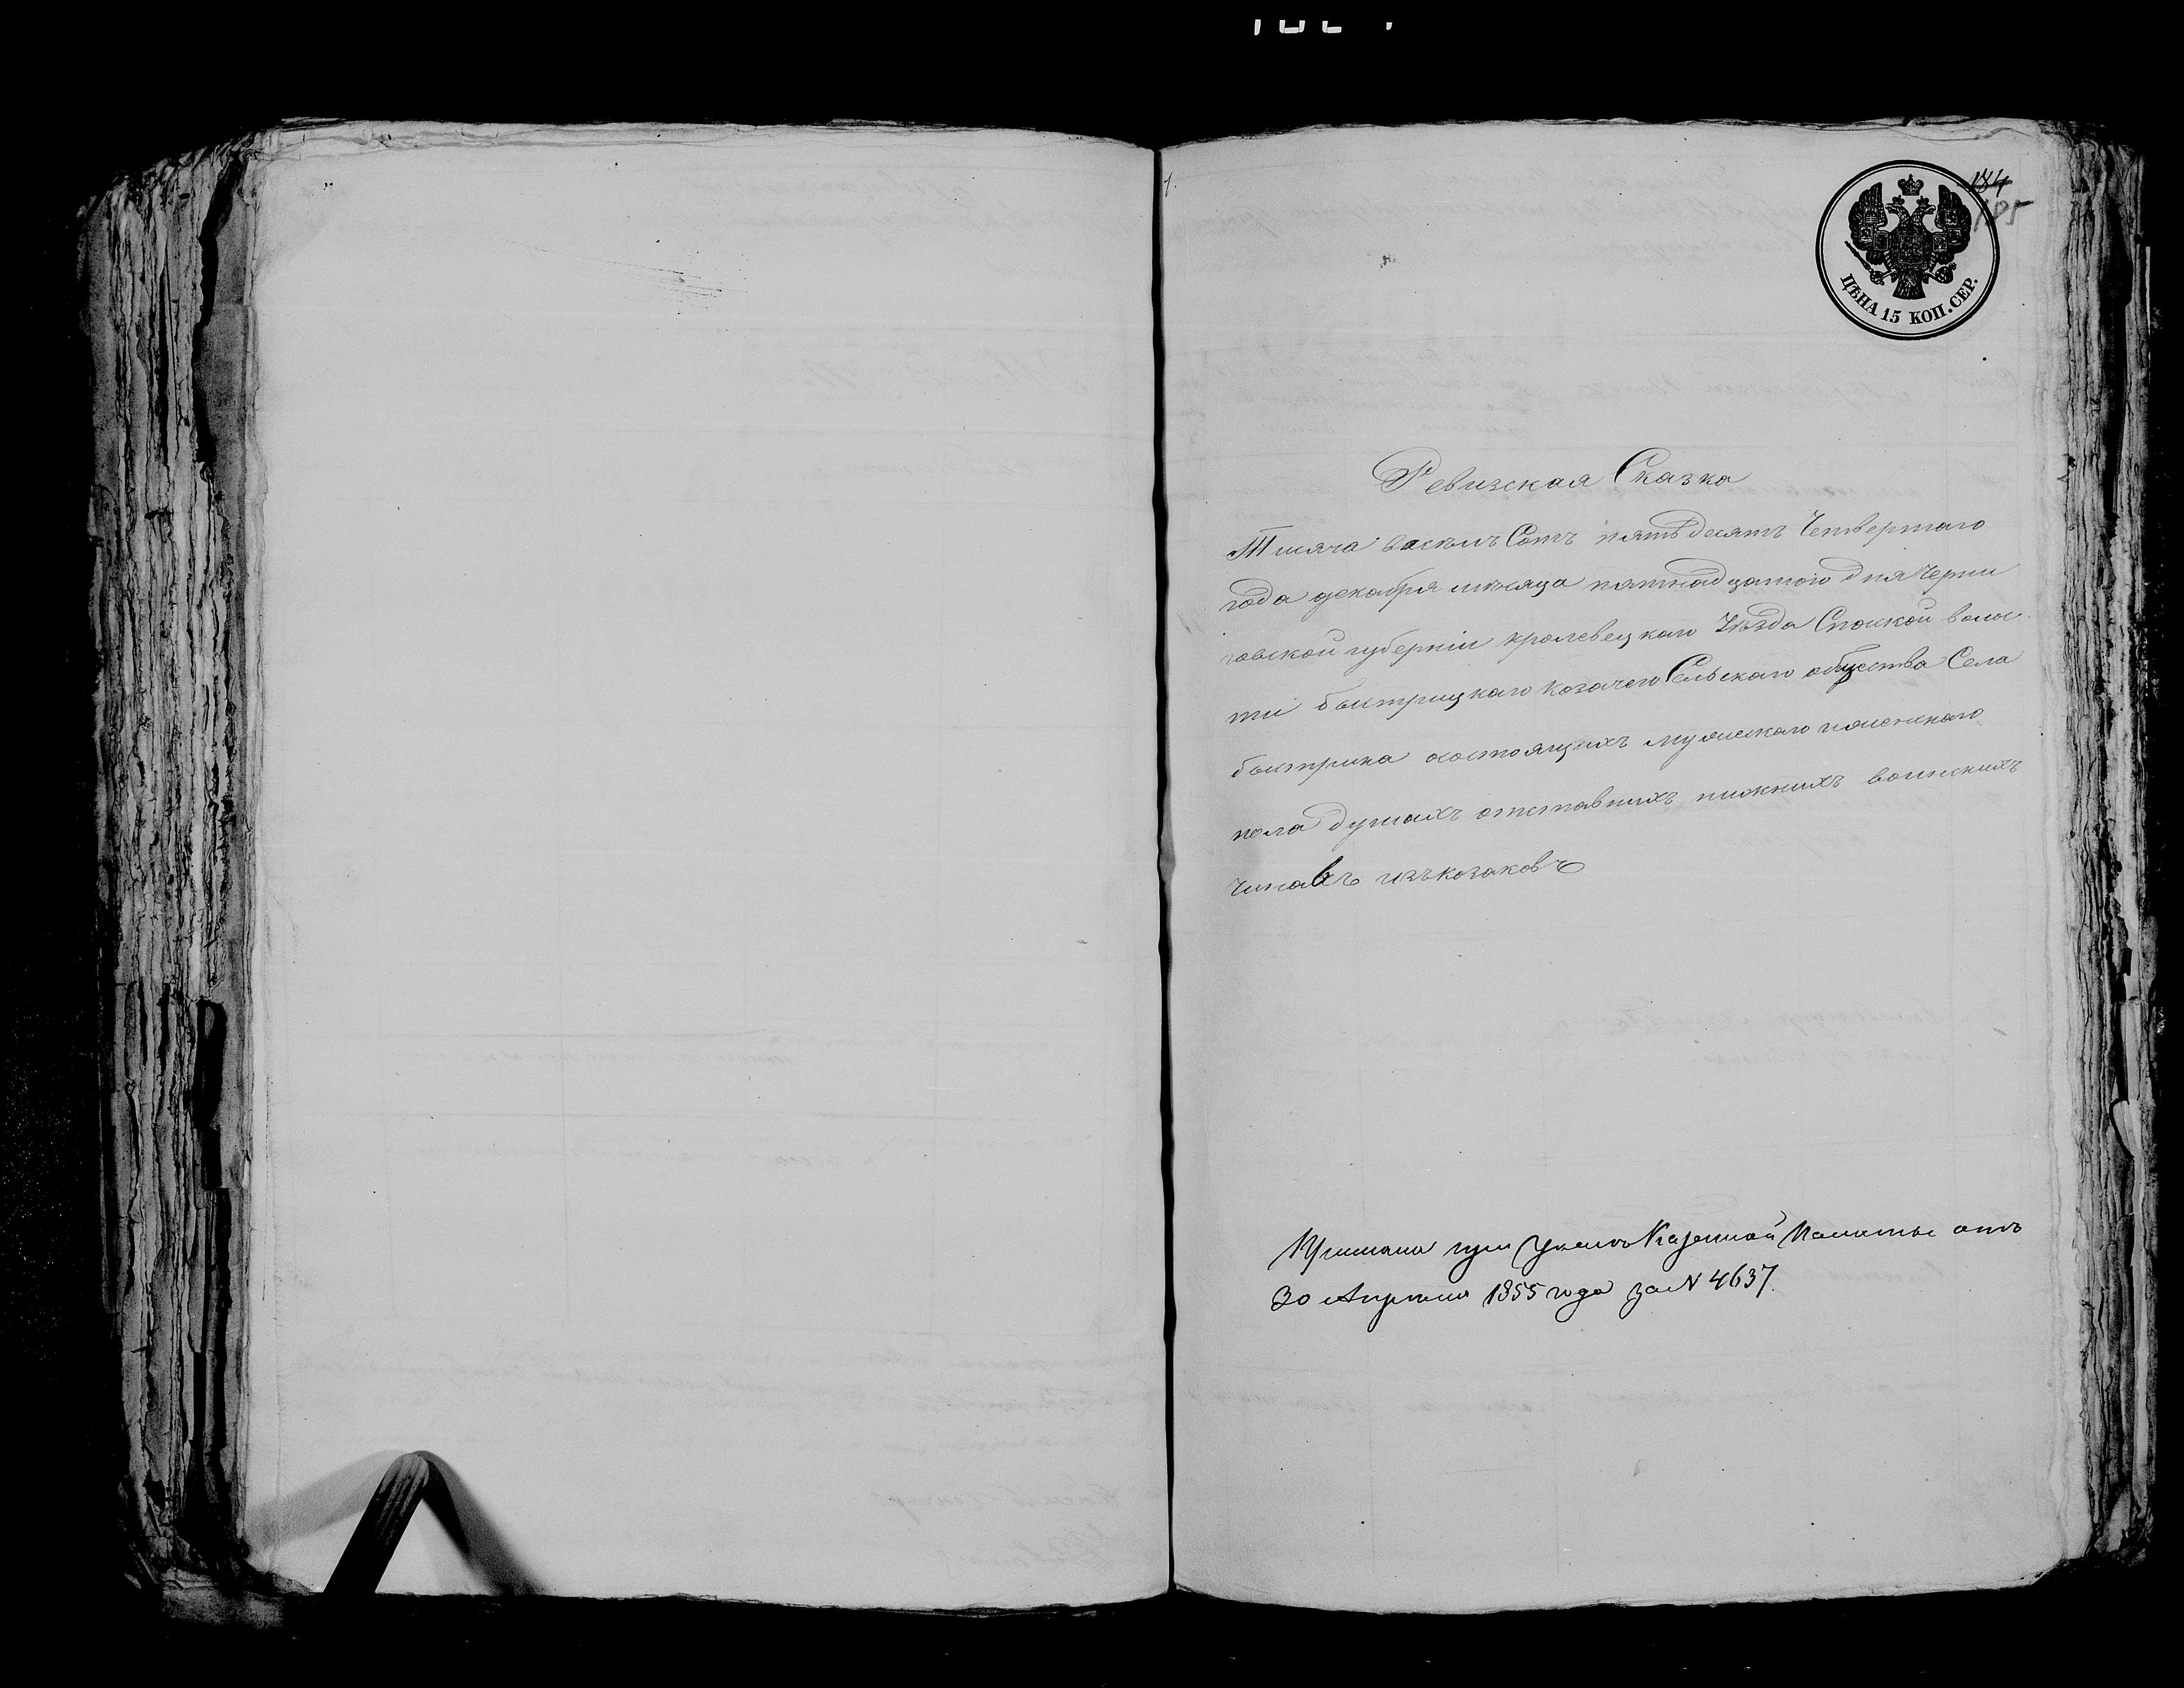 184
185
ЦѢНА 15 КОП. СЕР.
Ревизская Сказка
Тисяча васѣмъ Сотъ пятьдесятъ Четвертаго
года декабря мѣсяца пятнадцатого дня Черни
говской губерніи кролевецкаго Уѣзда Спаской волос
ти быстрицкаго козачего Сельскаго общества Села
быстрика состоящихъ мужескаго и женскаго
пола душахъ отставнихъ нижнихъ воинскихъ
чиновъ изъ козаковъ
при Указѣ Казенной Палаты отъ
30 Апрѣля 1855 года за N 4637.